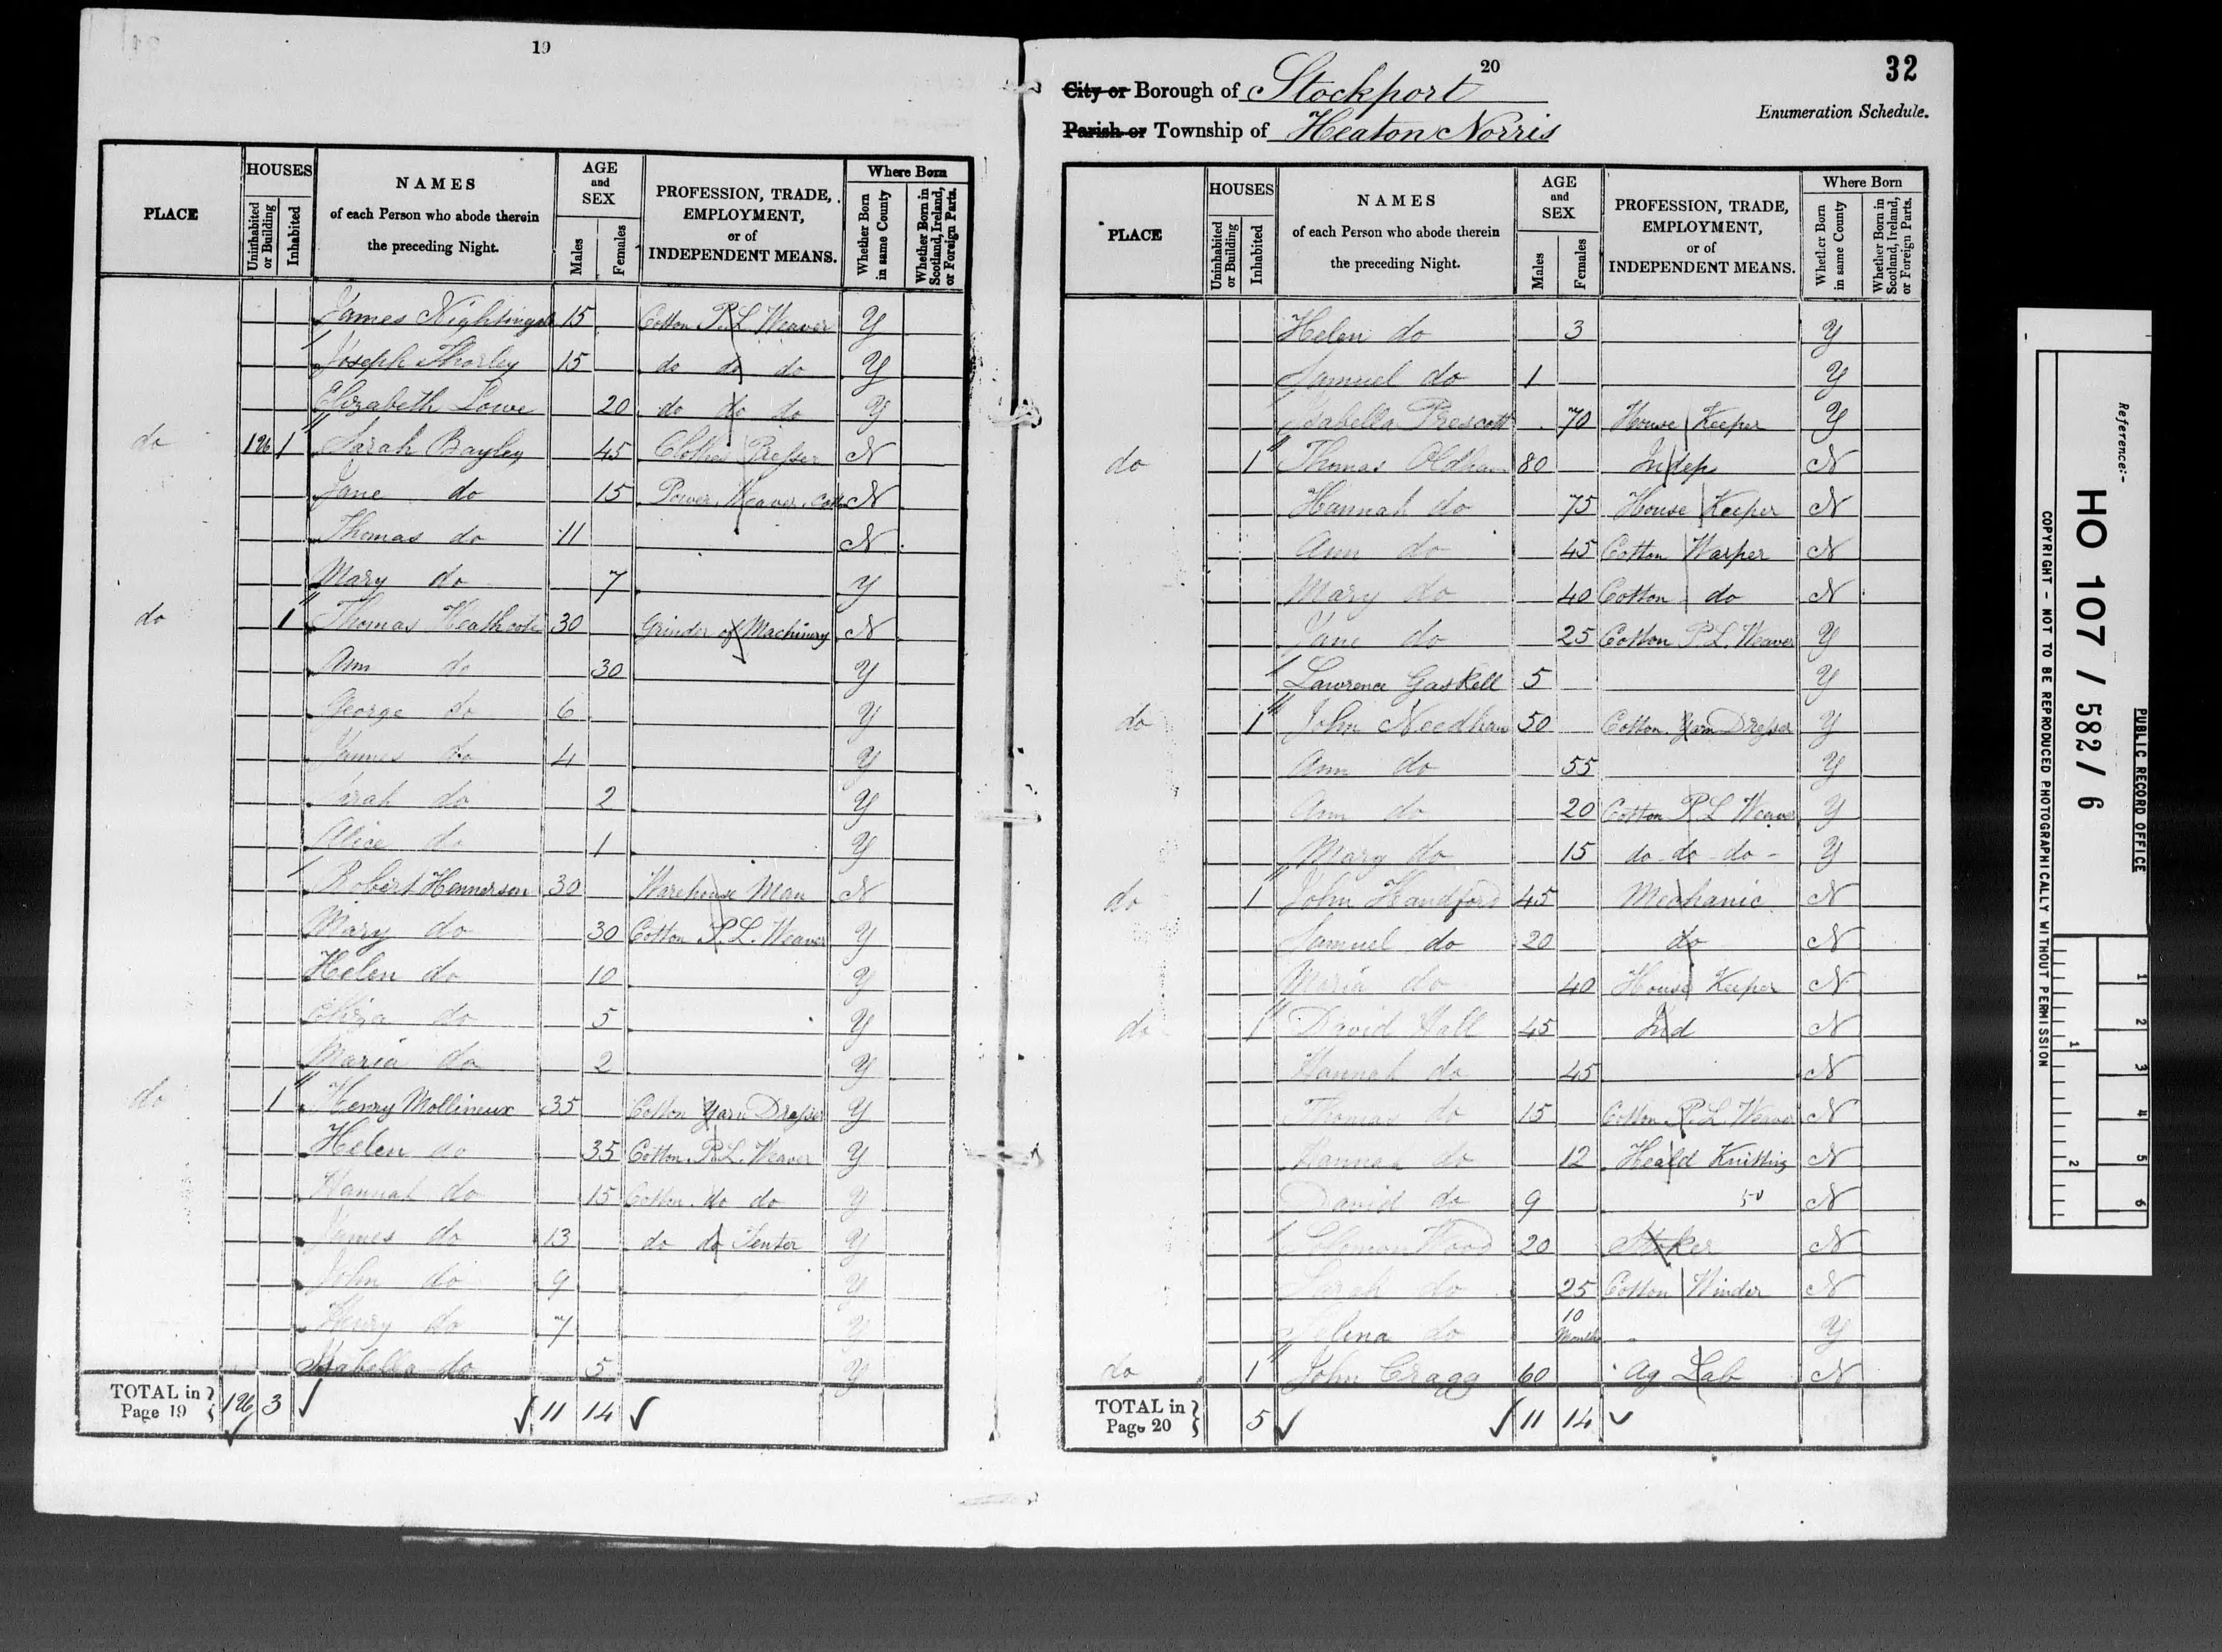 19
PLACE
HOUSES
Uninhabited or Building
Inhabited
NAMES
of each Person who abode therein
the preceding Night.
AGE
and
SEX
Males
Females
PROFESSION, TRADE,
EMPLOYMENT,
or of
INDEPENDENT MEANS.
Where Born
Whether Born in same County
Whether Born in Scotland, Ireland, or Foreign Parts.
James Nightingale 15 Cotton P.L. Weaver Y
Joseph Thorley 15 do do do Y
Elizabeth Lowe 20 do do do Y
do 1 Sarah Bayley 45 Clothes Presser N
Jane do 15 Power Weaver Cotton N
Thomas do 11 N
Mary do 7 Y
do 1 Thomas Heathcote 30 Grinder of Machinery N
Ann do 30 Y
George do 6 Y
James do 4 Y
Sarah do 2 Y
Alice do 1 Y
Robert Hennerson 30 Warehouse Man N
Mary do 30 Cotton P.L. Weaver Y
Helen do 10 Y
Eliza do 5 Y
Maria do 2 Y
do 1 Henry Mollineux 35 Cotton Yarn Dresser Y
Helen do 35 Cotton P.L. Weaver Y
Hannah do 15 Cotton do do Y
James do 13 do do Tenter Y
John do 9 Y
Henry do 7 Y
Isabella do 5 Y
TOTAL in Page 19 3 11 14
20
32
City or Borough of Stockport
Enumeration Schedule.
Parish or Township of Heaton Norris
PLACE
HOUSES
Uninhabited or Building
Inhabited
NAMES
of each Person who abode therein
the preceding Night.
AGE
and
SEX
Males
Females
PROFESSION, TRADE,
EMPLOYMENT,
or of
INDEPENDENT MEANS.
Where Born
Whether Born in same County
Whether Born in Scotland, Ireland, or Foreign Parts.
Helen do 3 Y
Samuel do 1 Y
Isabella Prescott 70 House Keeper Y
do 1 Thomas Oldham 80 Indep N
Hannah do 75 House Keeper N
Ann do 45 Cotton Warper N
Mary do 40 Cotton do N
Jane do 25 Cotton P.L. Weaver Y
Lawrence Gaskell 5 Y
do 1 John Needham 50 Cotton Yarn Dresser Y
Ann do 55 Y
Ann do 20 Cotton P.L Weaver Y
Mary do 15 do do do Y
do 1 John Handford 45 Mechanic N
Samuel do 20 do N
Maria do 40 House Keeper N
do 1 David Hall 45 Ind N
Hannah do 45 N
Thomas do 15 Cotton P.L. Weaver N
Hannah do 12 Heald Knitting N
David do 9 50 N
Solomon Wood 20 Stoker N
Sarah do 25 Cotton Winder N
Selina do 10 Months Y
do 1 John Cragg 60 Ag Lab N
TOTAL in Page 20 5 11 14
Reference:-
HO 107 / 582 / 6
PUBLIC RECORD OFFICE
COPYRIGHT - NOT TO BE REPRODUCED PHOTOGRAPHICALLY WITHOUT PERMISSION
1 2 3 4 5 6
1 2